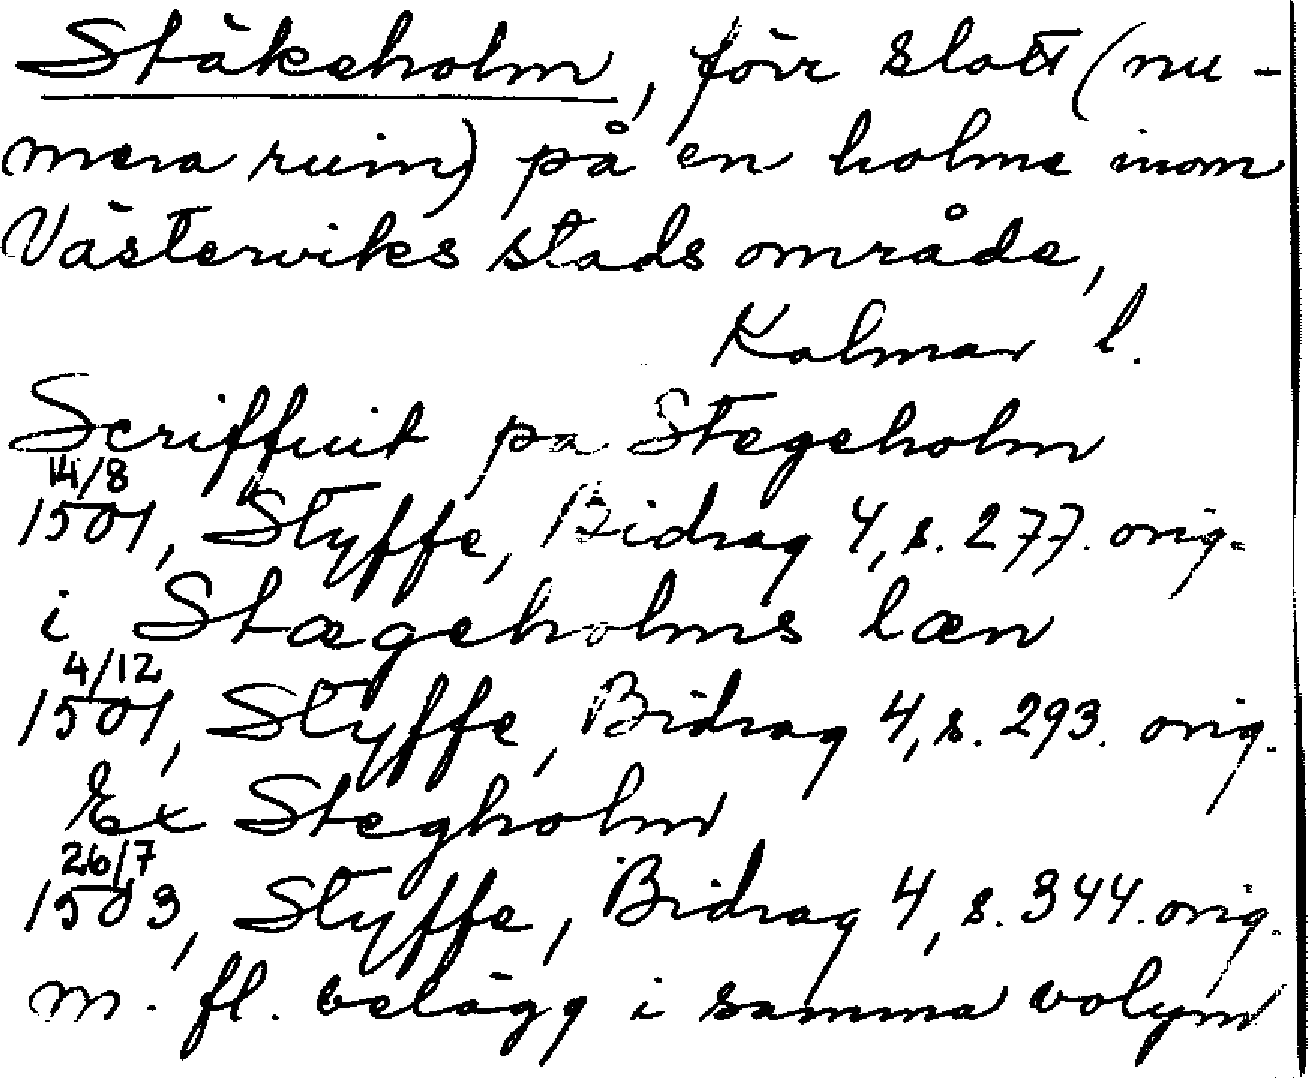 Stäkeholm, förr slott (nu-
mera ruin) på en holme inom
Västerviks stads område,
Kalmar l.
Scriffuit pa Stegeholm
14/8
1501, Styffe, Bidrag 4, s. 277. orig.
i Stægeholms læn
4/12
1501, Styffe, Bidrag 4, s. 293. orig.
Ex Stegholm
26/7
1503, Styffe, Bidrag 4, s. 344. orig.
m. fl. belägg i samma volym